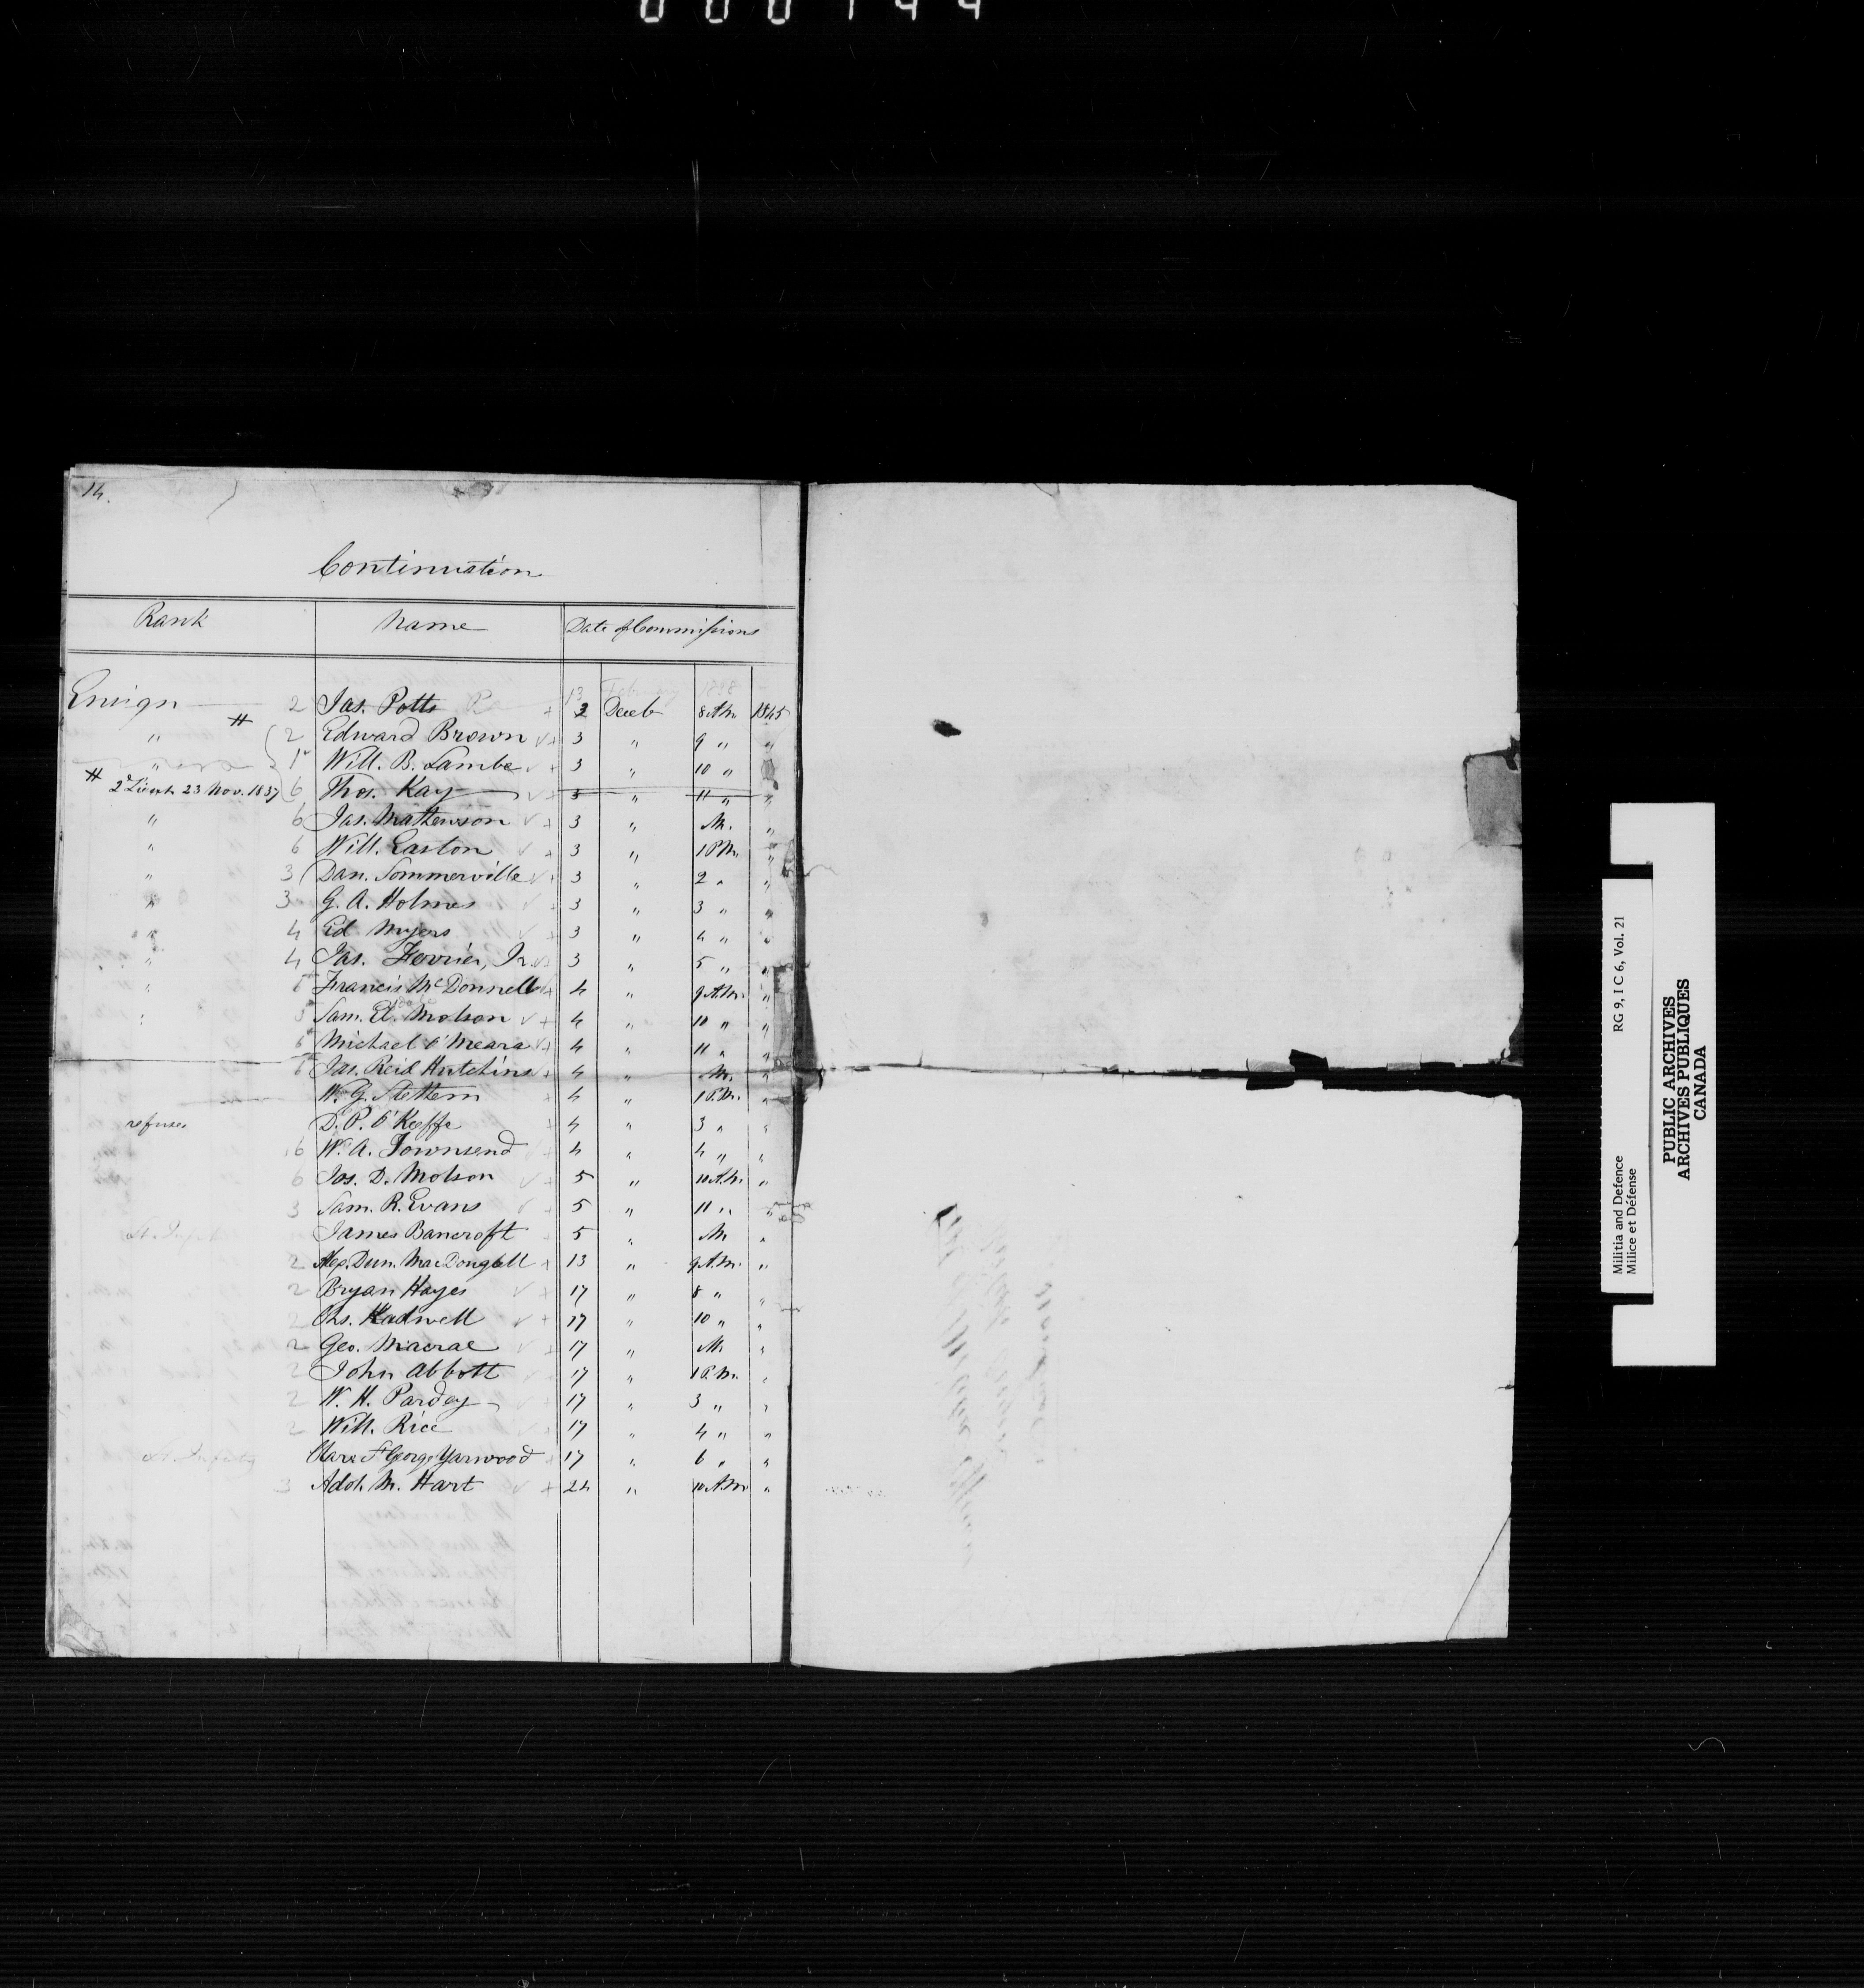 14.
Continuation
Rank Name Date of Commissions
13 February 1838
Ensign 2 Jas. Potts 3 Deceb 8 A.M. 1845
# " 2 Edward Brown 3 " 9 " "
" 1 Will. B. Lambe 3 " 10 " "
# 2d Lieut. 23 Nov. 1837 6 Thos. Kay 3 " 11 " "
" 6 Jas. Mathewson 3 " M. "
" 6 Will. Easton 3 " 1 P.M. "
" 3 Dan. Sommerville 3 " 2 " "
" 3 G. A. Holmes 3 " 3 " "
" 4 Ed Myers 3 " 4 " "
" 4 Jas. Ferrier, Jr. 3 " 5 " "
" Francis McDonnell 4 " 9 A.M. "
" Sam. El. Molson 4 " 10 " "
Michael O'Meara 4 " 11 " "
Jas. Reid Hutchins 4 " M. "
W. G. Stethem 4 " 1 P.M. "
refuses D. P. O'Keeffe 4 " 3 " "
6 W. A. Townsend 4 " 4 " "
6 Jos. D. Molson 5 " 10 A.M. "
3 Sam. R. Evans 5 " 11 " "
James Bancroft 5 " M "
2 Alex. Dun. MacDougall 13 " 9 A.M. "
2 Bryan Hayes 17 " 8 " "
2 Chs. Hadwell 17 " 10 " "
2 Geo. Macrae 17 " M. "
2 John Abbott 17 " 1 P.M. "
2 W. H. Pardey 17 " 3 " "
2 Will. Rice 17 " 4 " "
George Yarwood 17 " 6 " "
3 Adol. M. Hart 24 " 10 A.M. "
Militia and Defence RG 9, I C 6, Vol. 21
Milice et Défense
PUBLIC ARCHIVES
ARCHIVES PUBLIQUES
CANADA